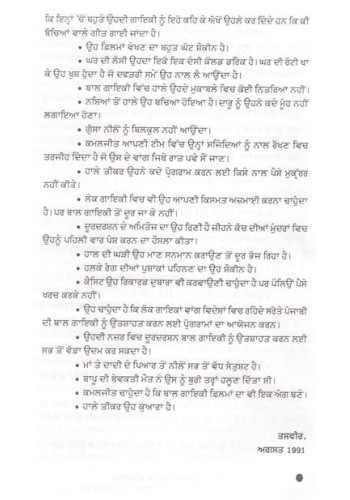 ਕਿ ਇਨ੍ਹਾਂ 'ਚੋਂ ਬਹੁਤੇ ਉਹਦੀ ਗਾਇਕੀ ਨੂੰ ਇਹੋ ਕਹਿ ਕੇ ਅੱਖੋਂ ਉਹਲੇ ਕਰ ਦਿੰਦੇ ਹਨ ਕਿ ਕੀ
ਬੱਚਿਆਂ ਵਾਲੇ ਗੀਤ ਗਾਈ ਜਾਂਦਾ ਹੈ।
• ਉਹ ਫ਼ਿਲਮਾਂ ਵੇਖਣ ਦਾ ਬਹੁਤ ਘੱਟ ਸ਼ੌਕੀਨ ਹੈ।
ਘਰ ਦੀ ਲੱਸੀ ਉਹਦਾ ਇਕੋ ਇਕ ਦੇਸੀ ਕੋਲਡ ਡਰਿੰਕ ਹੈ। ਘਰ ਦੀ ਰੋਟੀ ਖਾ
ਕੇ ਉਹ ਖੁਸ਼ ਹੁੰਦਾ ਹੈ ਜੋ ਦਫਤਰੀ ਸਮੇਂ ਉਹ ਨਾਲ ਲੈ ਆਉਂਦਾ ਹੈ।
• ਬਾਲ ਗਾਇਕੀ ਵਿੱਚ ਹਾਲੇ ਉਹਦੇ ਮੁਕਾਬਲੇ ਵਿਚ ਕੋਈ ਨਿਤਰਿਆ ਨਹੀਂ।
• ਨਸ਼ਿਆਂ ਤੋਂ ਹਾਲੇ ਉਹ ਬਚਿਆ ਹੋਇਆ ਹੈ। ਦਾਰੂ ਨੂੰ ਉਹਨੇ ਕਦੇ ਮੂੰਹ ਨਹੀਂ
ਲਗਾਇਆ ਹੋਣਾ।
• ਗੁੱਸਾ ਨੀਲੋਂ ਨੂੰ ਬਿਲਕੁਲ ਨਹੀਂ ਆਉਂਦਾ।
• ਕਮਲਜੀਤ ਆਪਣੀ ਟੀਮ ਵਿੱਚ ਉਨ੍ਹਾਂ ਸਜਿੰਦਿਆਂ ਨੂੰ ਨਾਲ ਰੱਖਣ ਵਿਚ
ਤਰਜੀਹ ਦਿੰਦਾ ਹੈ ਜੋ ਉਸ ਦੇ ਵਾਂਗ ਜਿਥੇ ਰਾਤ ਪਵੇ ਸੌਂ ਜਾਣ।
• ਹਾਲੇ ਤੀਕਰ ਉਹਨੇ ਕਦੇ ਪ੍ਰੋਗਰਾਮ ਕਰਨ ਲਈ ਕਿਸੇ ਨਾਲ ਪੈਸੇ ਮੁਕੱਰਰ
ਨਹੀਂ ਕੀਤੇ।
• ਲੋਕ ਗਾਇਕੀ ਵਿਚ ਵੀ ਉਹ ਆਪਣੀ ਕਿਸਮਤ ਅਜ਼ਮਾਈ ਕਰਨਾ ਚਾਹੁੰਦਾ
ਹੈ। ਪਰ ਬਾਲ ਗਾਇਕੀ ਤੋਂ ਦੂਰ ਜਾ ਕੇ ਨਹੀਂ।
• ਦੂਰਦਰਸ਼ਨ ਦੇ ਅਮਿਤੋਜ਼ ਦਾ ਉਹ ਰਿਣੀ ਹੈ ਜੀਹਨੇ ਕੱਚ ਦੀਆਂ ਮੁੰਦਰਾਂ ਵਿਚ
ਉਹਨੂੰ ਪਹਿਲੀ ਵਾਰ ਪੇਸ਼ ਕਰਨ ਦਾ ਹੌਸਲਾ ਕੀਤਾ।
• ਹਾਲ ਦੀ ਘੜੀ ਉਹ ਮਾਣ ਸਨਮਾਨ ਕਰਾਉਣ ਤੋਂ ਦੂਰ ਭੱਜ ਰਿਹਾ ਹੈ।
• ਹਲਕੇ ਰੰਗ ਦੀਆਂ ਪੁਸ਼ਾਕਾਂ ਪਹਿਨਣ ਦਾ ਉਹ ਸ਼ੌਕੀਨ ਹੈ।
• ਕੈਸਿਟ ਉਹ ਰਿਕਾਰਡ ਦੁਬਾਰਾ ਵੀ ਕਰਵਾਉਣੀ ਚਾਹੁੰਦਾ ਹੈ ਪਰ ਪੱਲਿਉਂ ਪੈਸੇ
ਖਰਚ ਕਰਕੇ ਨਹੀਂ।
• ਉਹ ਚਾਹੁੰਦਾ ਹੈ ਕਿ ਲੋਕ ਗਾਇਕਾਂ ਵਾਂਗ ਵਿਦੇਸ਼ਾਂ ਵਿਚ ਰਹਿੰਦੇ ਸਰੋਤੇ ਪੰਜਾਬੀ
ਦੀ ਬਾਲ ਗਾਇਕੀ ਨੂੰ ਉਤਸ਼ਾਹਤ ਕਰਨ ਲਈ ਪ੍ਰੋਗਰਾਮਾਂ ਦਾ ਆਯੋਜਨ ਕਰਨ।
• ਉਹਦੀ ਨਜ਼ਰ ਵਿਚ ਦੂਰਦਰਸ਼ਨ ਬਾਲ ਗਾਇਕੀ ਨੂੰ ਉਤਸ਼ਾਹਤ ਕਰਨ ਲਈ
ਸਭ ਤੋਂ ਵੱਡਾ ਉਦਮ ਕਰ ਸਕਦਾ ਹੈ।
• ਮਾਂ ਤੇ ਦਾਦੀ ਦੇ ਪਿਆਰ ਤੋਂ ਨੀਲੋਂ ਸਭ ਤੋਂ ਵੱਧ ਸੰਤੁਸ਼ਟ ਹੈ।
• ਬਾਪੂ ਦੀ ਬੇਵਕਤੀ ਮੌਤ ਨੇ ਉਸ ਨੂੰ ਬੁਰੀ ਤਰ੍ਹਾਂ ਹਲੂਣ ਦਿੱਤਾ ਸੀ।
• ਕਮਲਜੀਤ ਚਾਹੁੰਦਾ ਹੈ ਕਿ ਬਾਲ ਗਾਇਕੀ ਫ਼ਿਲਮਾਂ ਦਾ ਵੀ ਇਕ ਅੰਗ ਬਣੇ।
• ਹਾਲੇ ਤੀਕਰ ਉਹ ਕੁਆਰਾ ਹੈ।
ਤਸਵੀਰ,
ਅਗਸਤ 1991